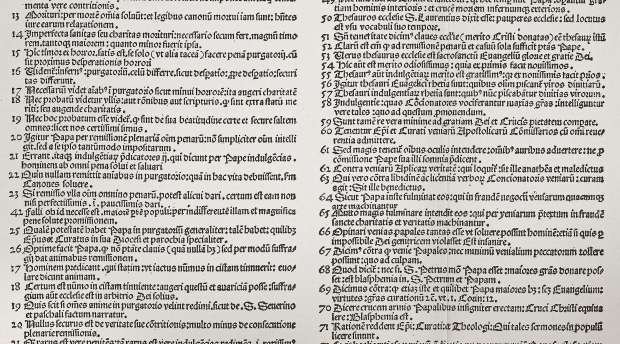 menta vere contritionis.
13 Morituri: per mortē omnia soluūt: et legibus canonū mortui iam sunt: hñtes
iure earum relaxationem.
14 Imperfecta sanitas seu charitas morituri: necessario secum fert, magnū timo
rem. tantoqȝ maiorem: quanto minor fuerit ipsa.
15 Hic timor et horror, satis est, se solo (vt alia taceā) facere penā purgatorij. cū
sit proximus desperationis horrori
16 Videntur. infern⁹: purgatoriū. celū differre. sicut. despatio: ꝓpe despatio: securi
tas differunt.
17 Necessariū videt̃ aīab⁹ ī purgatorio sicut minui horrorē: ita augeri charitatē
18 Nec probatū videtur vllis: aut rōnibus aut scripturis. qͦ sint extra statū me
riti: seu augende charitatis.
19 Nec hoc probatum esse videt̃. qͦ sint de sua beatitudine certe et secure saltem
omnes: licet nos certissimi simus.
20 Igitur Papa per remissionē plenariā oīm penarū: nō simpliciter oīm intelli
git. sed a se ipso tantūmodo impositarum.
21 Errant. itaqȝ indulgētiaȝ p̄dicatores ij. qui dicunt per Pape indulgēcias.
hominem ab omni pena solui et saluari
22 Quin nullam remittit aniabus in purgatorio: quam in hac vita debuissent. sm̄
Canones soluere.
23 Si remissio vlla oīm omnino penarū. potest alicui dari. certum est eam non
nisi perfectissimis. .i. paucissimis dari.
Falli ob id necesse est. maiorē ptē populi: per indifferentē illam et magnificā
pene solute promissionem.
25 Qualē potestatē habet Papa in purgatoriū generaliter: talē habet: quilibȝ
Epūs et Curatus in sua Diocesi et parochia specialiter.
26 Optime facit Papa. qͦ nō ptāte clauis (quā nullā hȝ) sed per modū suffra
gij dat animabus remissionem.
17 Hominem predicant. qui statim. vt iactus nūmus in cistam tinnierit: euo
lare dicunt animam.
18 Certum est nūmo in cistam tinniente: augeri questū et auariciā posse. suffra
gium aūt ecclesie est in arbitrio Dei solius.
19 Quis scit si omnes anime in purgatorio velint redimi. sicut de. S. Seuerino
et paschali factum narratur.
20 Nullus securus est de veritate sue cōtritionis: multo minus de consecutione
plenarie remissionis.
gratiam hominis interioris, et crucē mortem infernumqȝ exterioris.
50 Thesauros ecclesie S. Laurentius dixit esse: pauperes ecclesie: sed locutus
est vsu vocabuli suo tempore.
51 Sine temeritate dicim⁹ claues ecclesie (merito Cristi donatas) eē thesaurū istū.
52 Clarū est em̄ qͦ ad remissionē penarū et casuū sola sufficit ptās Pape.
53 Verus thesaurus ecclesie est sacrosanctū Euangeliū glorie et gratie Dei.
54 Hic aūt est merito odiosissimus: quia ex primis facit nouissimos.
55 Thesaur⁹ aūt indulgentiarū merito est gratissim⁹: qȝ ex nouissimis facit prīos.
56 Igitur thesauri Euāgelici rhetia sunt: quibus olim piscabāt̃ viros diuitiarū.
57 Thesauri indulgentiarū rhetia sunt: quibus nūc piscantur diuitias virorum.
58 Indulgentie: quas Cōcionatores vociferantur maximas gr̃as: intelliguntur
vere tales: quo ad questum promouendum.
59 Sunt tamē re vera minime ad gratiam Dei et Crucis pietatem compate.
60 Tenentur Epī et Curati veniarū Apostolicarū Cōmissarios cū oīm reue
rentia admittere.
61 Sed magis tenent̃ oībus oculis intendere: oībus auribus aduertere: ne, p
cōmissione Pape sua illi somnia p̄dicent.
62 Contra veniarū Aplicaȝ veritatē: qui loquit̃: sit ille anathēa et maledictus
63 Qui vero cōtra libidinē ac licentiā verboȝ Concionatoris veniarū: curam
agit: Sit ille benedictus.
64 Sicut Papa iuste fulminat eos: qui in fraudē negocij veniarum quacumqȝ
arte machinantur
65 Multo magis fulminare intendit eos: qui per veniarum p̄textum in fraudē
sancte charitatis et veritatis machinantur.
66 Opinari venias papales tantas esse: vt soluere possint hominē: etiā si quis p
impossibile Dei genitricem violasset Est insanire.
67 Diximus cōtra qͦ venie Papales: nec minimū venialium peccatorum tollere
possint: quo ad culpam.
68 Quod dicit̃: nec si. S. Petrus mō Papa esset: maiores gr̃as donare posset:
est blasphemia in. S. Petrum et Papam.
69 Dicimus cōtra qͦ etiā iste et quilibet Papa maiores hȝ: scȝ Euangelium:
virtutes: gr̃as curationū ꝛc. vt. 1. Corin: 12.
70 Dicere crucem armis Papalibus insigniter erectam: Cruci Christi equiua
lere: Blasphemia est.
71 Rationē reddent Epī: Curati et Theologi: Qui tales sermones in populū
licere sinunt.